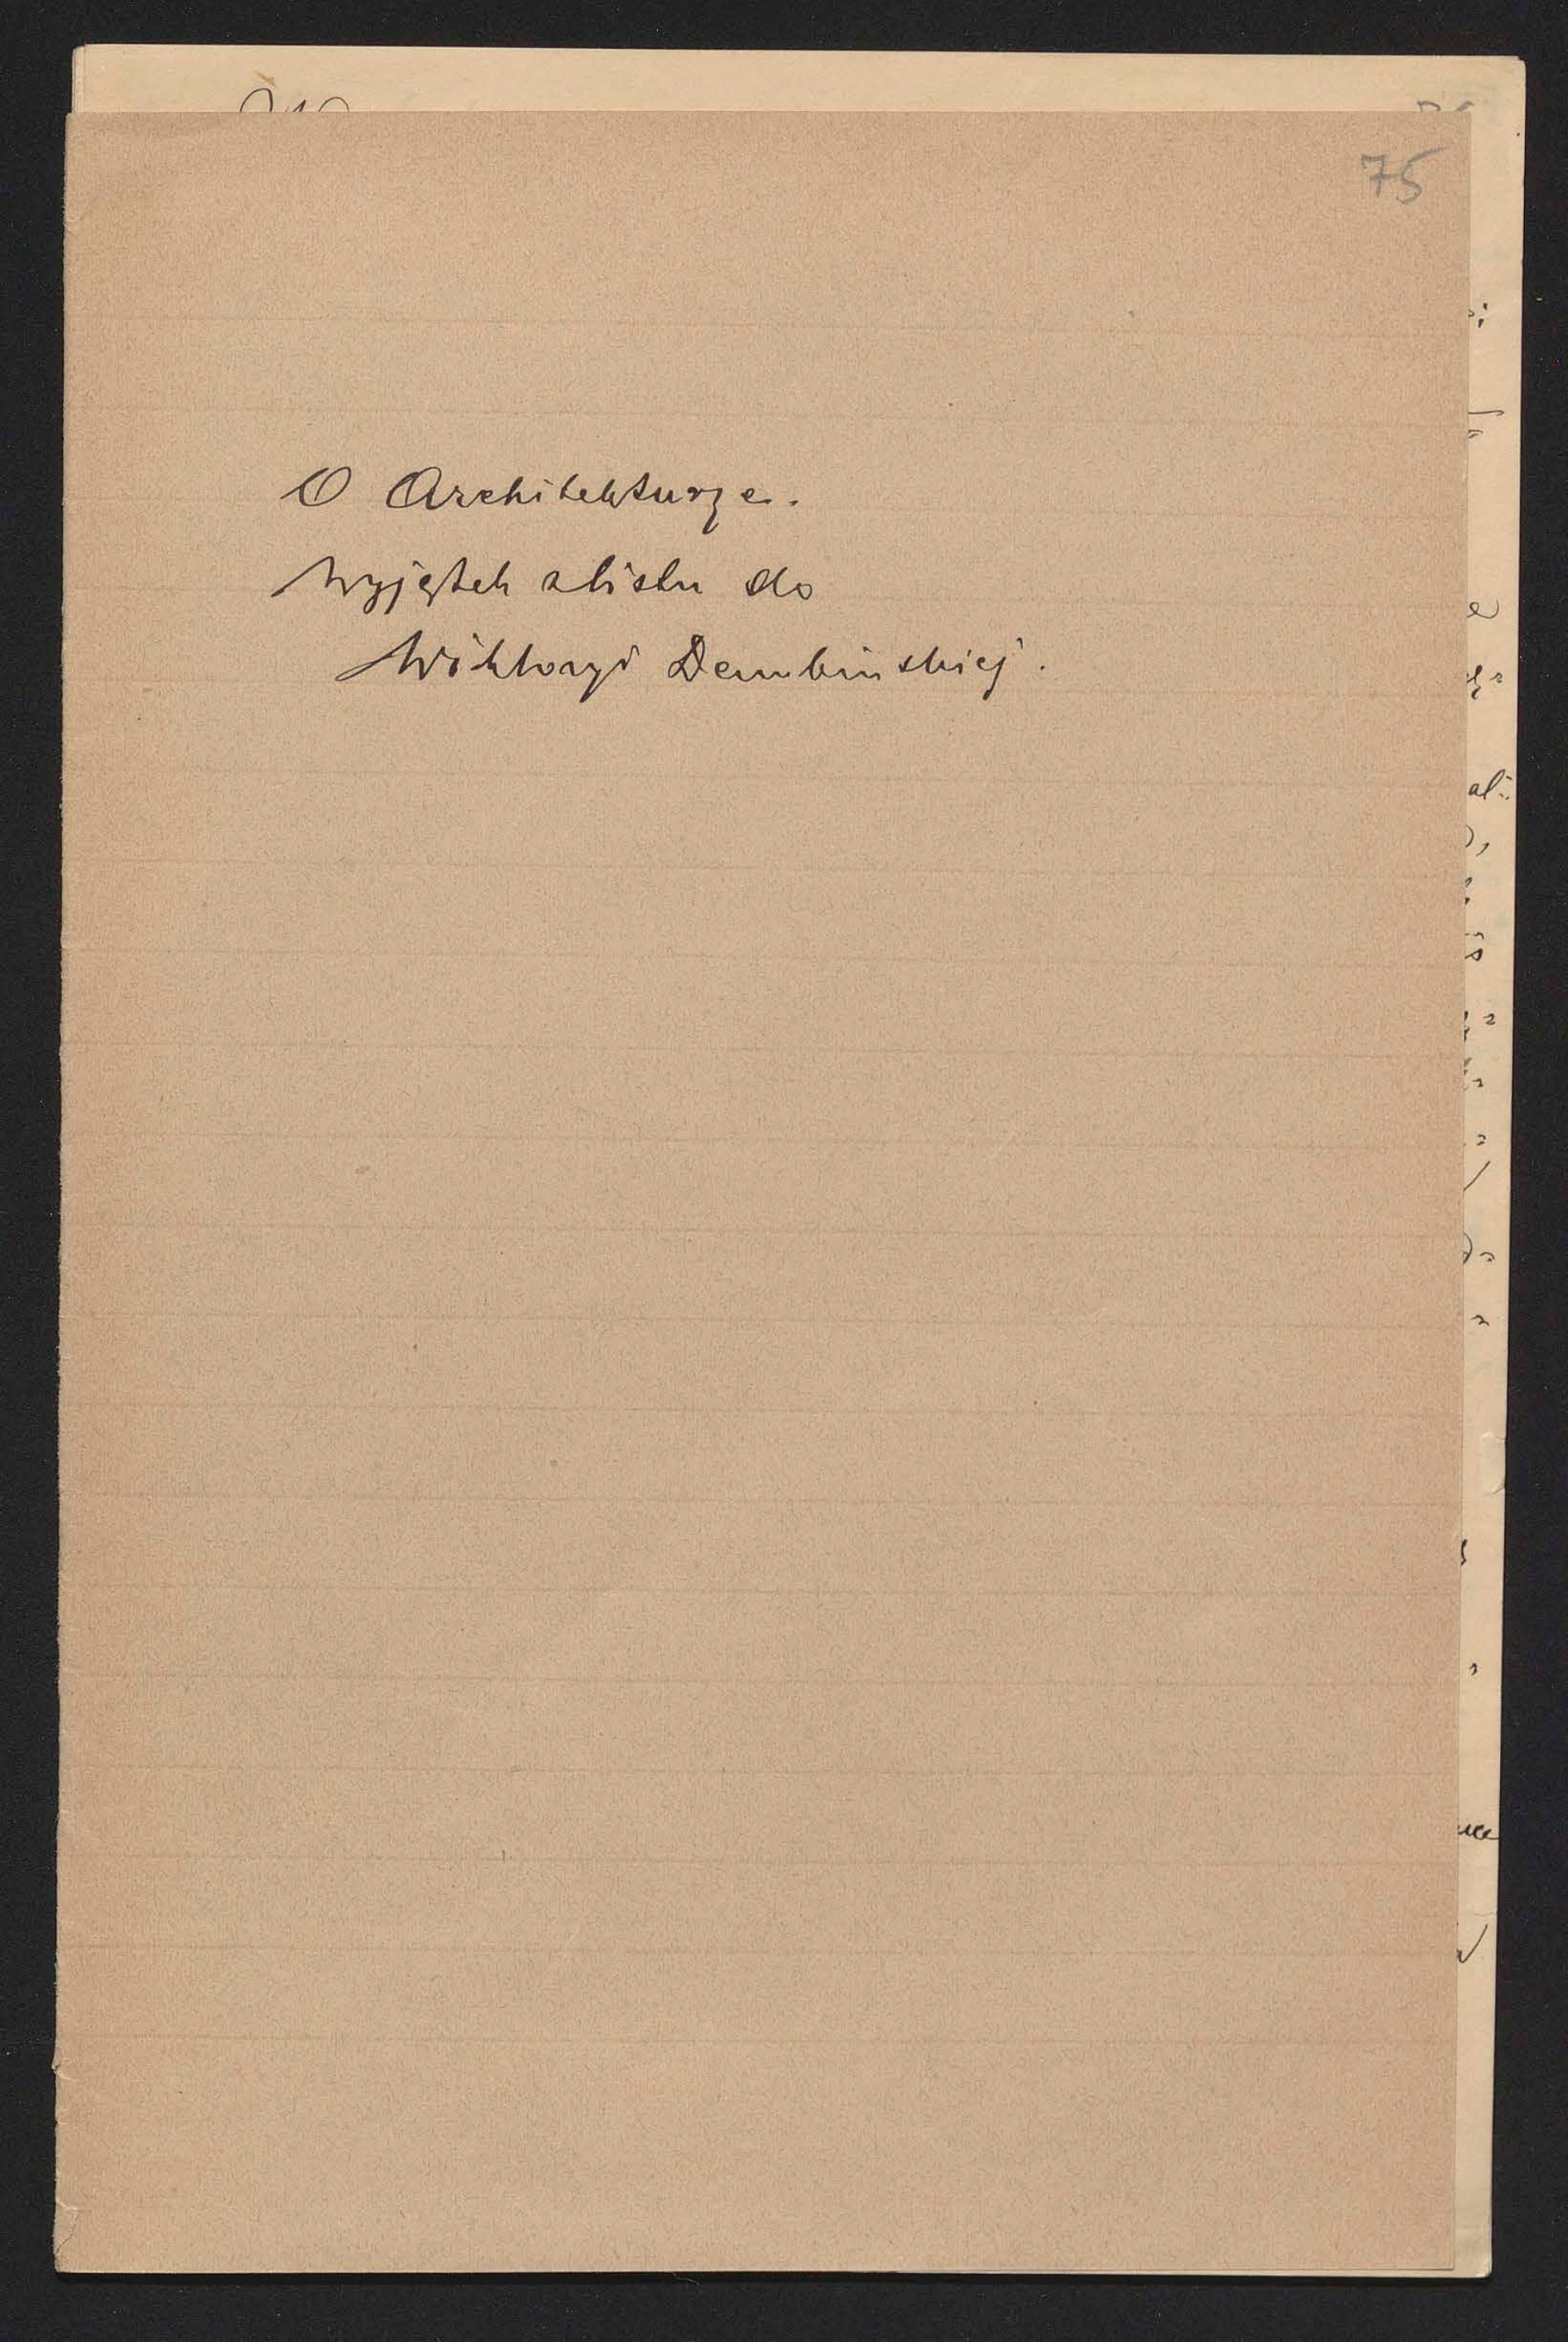 75
O Architekturze.
Wyjątek z listu do
Wiktoryi Dembińskiej.